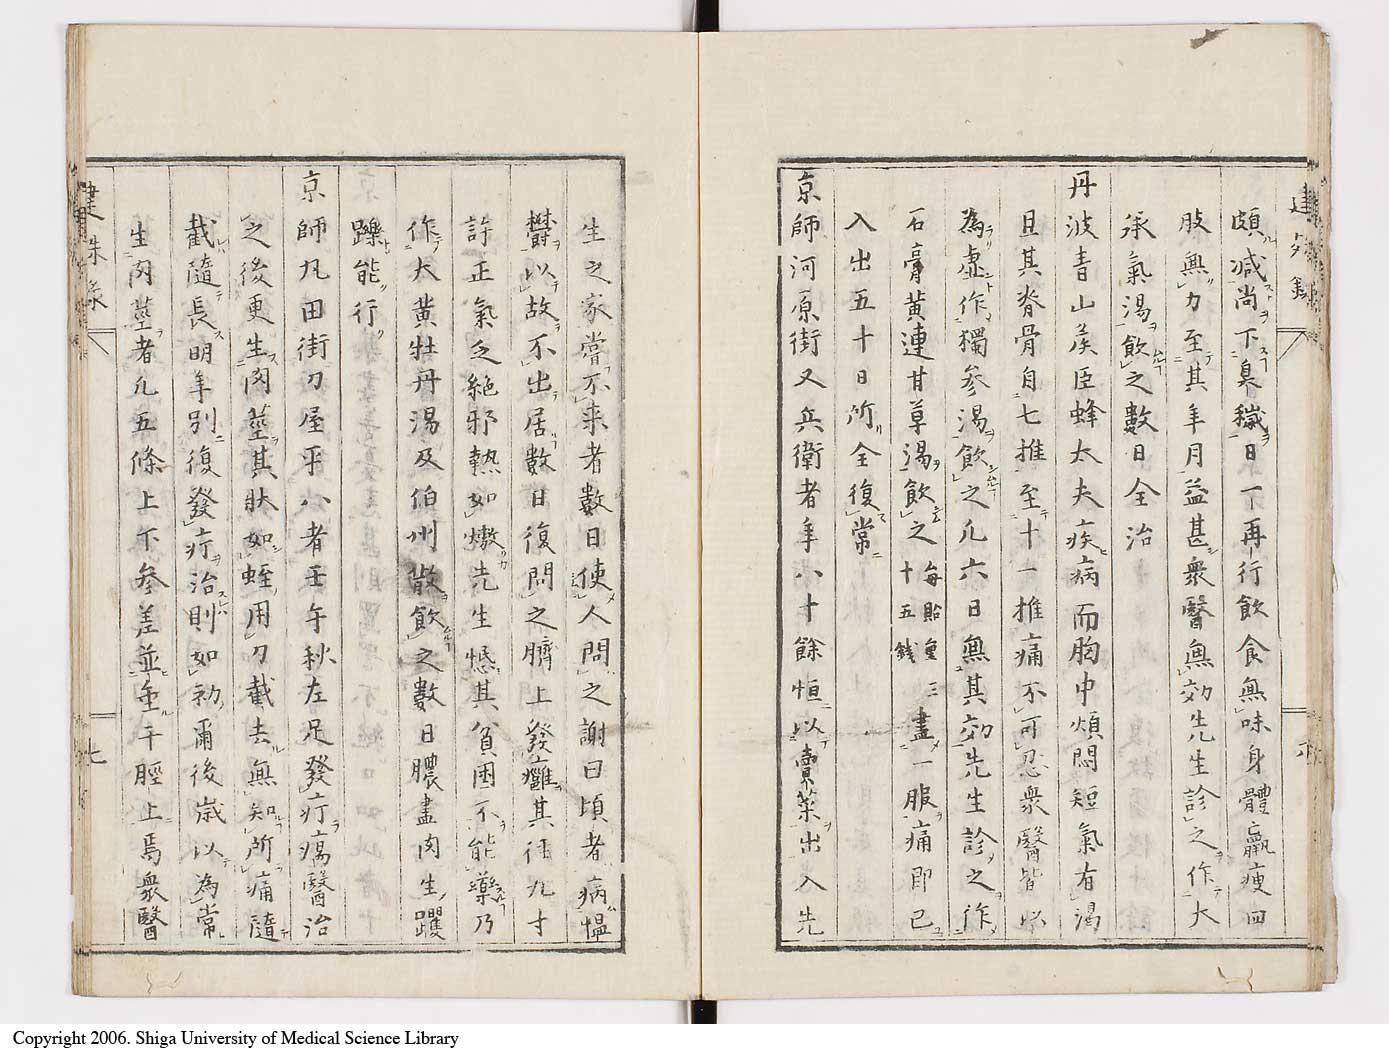 頗減尚下臭穢日一再行飲食無味身體羸瘦四
肢無力至其年月益甚衆醫無効先生診之作大
承氣湯飲之數日全治
丹波青山侯臣蜂大夫疾病而胸中煩悶短氣有渴
且其脊骨自七推至十一推痛不可忍衆醫皆以
為虛作獨參湯飲之凡六日無其効先生診之作
石膏黃連甘草湯飲之每貼重十五錢三盡一服痛即已
入出五十日所全復常
京師河原街又兵衛者年八十餘恒以賣菜出入先
生之家嘗不來者數日使人問之謝曰頃者病愠
欝以故不出居數日復問之臍上發癰其徑九寸
許正氣乏絕邪熱如燉先生憾其貧困不能藥乃
作大黃牡丹湯及伯州散飲之數日膿盡肉生躩
躒能行
京師凡田街刀屋平八者壬午秋左足發疔瘍醫治
之後更生肉莖其狀如蛭用刀截去無知所痛隨
截隨長明年別復發疔治則如初爾後歲以為常
生肉莖者凡五條上下參差並垂于脛上焉衆醫
建殊録
七